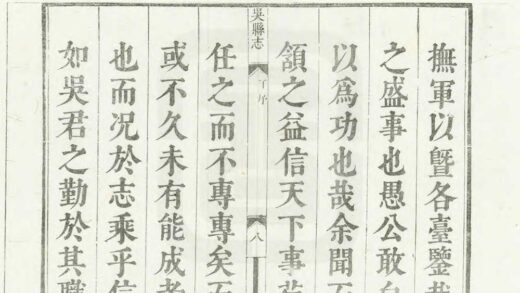 撫軍以曁各臺鑒
之盛事也愚公敢
以爲功也哉余聞
頷之益信天下事
吳縣志
序
八
任之而不專專矣
或不久未有能成
也而况於志乘乎
如吳君之勤於其職